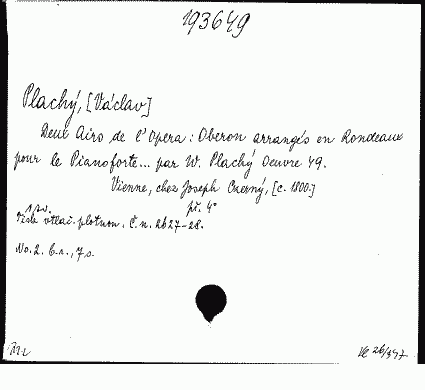 193649
Plachý, [Václav]
Deux Airs de l'Opera: Oberon arrangés en Rondeaux
pour le Pianoforte... par W. Plachý Oeuvre 49.
Vienne, chez Joseph Czerný, [c. 1800.]
1 sv. př. 4°
vtlač. plotnou. Č. n. 2627-28.
No. 2. b.r., 7 s.